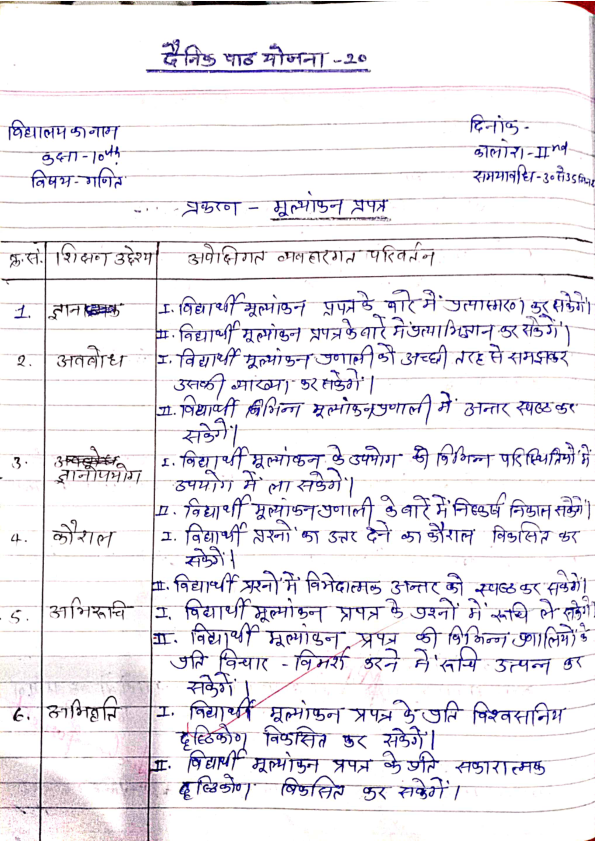 दैनिक पाठ योजना - 20
विद्यालय का नाम
दिनांक -
कक्षा - 10th
कालांश - IInd
विषय - गणित
समयावधि - 30 से 35 मिनट
प्रकरण - मूल्यांकन प्रपत्र
क्र.सं. शिक्षण उद्देश्य अपेक्षित व्यवहारगत परिवर्तन
1. ज्ञान I. विद्यार्थी मूल्यांकन प्रपत्र के बारे में प्रत्यास्मरण कर सकेगें।
II. विद्यार्थी मूल्यांकन प्रपत्र के बारे में प्रत्याभिज्ञान कर सकेगें।
2. अवबोध I. विद्यार्थी मूल्यांकन प्रणाली को अच्छी तरह से समझकर
उसकी व्याख्या कर सकेगें।
II. विद्यार्थी विभिन्न मूल्यांकन प्रणाली में अन्तर स्पष्ट कर
सकेगें।
3. ज्ञानोपयोग I. विद्यार्थी मूल्यांकन के उपयोग को विभिन्न परिस्थितियों में
उपयोग में ला सकेगें।
II. विद्यार्थी मूल्यांकन प्रणाली के बारें में निष्कर्ष निकाल सकेगें।
4. कौशल I. विद्यार्थी प्रश्नों का उत्तर देने का कौशल विकसित कर
सकेगें।
II. विद्यार्थी प्रश्नों में विभेदात्मक अन्तर को स्पष्ट कर सकेगें।
5. अभिरूचि I. विद्यार्थी मूल्यांकन प्रपत्र के प्रश्नों में रूचि ले सकेगें
II. विद्यार्थी मूल्यांकन प्रपत्र की विभिन्न प्रणालियों के
प्रति विचार - विमर्श करने में रूचि उत्पन्न कर
सकेगें।
6. अभिवृत्ति I. विद्यार्थी मूल्यांकन प्रपत्र के प्रति विश्वसानिय
दृष्टिकोण विकसित कर सकेगें।
II. विद्यार्थी मूल्यांकन प्रपत्र के प्रति सकारात्मक
दृष्टिकोण विकसित कर सकेगें।